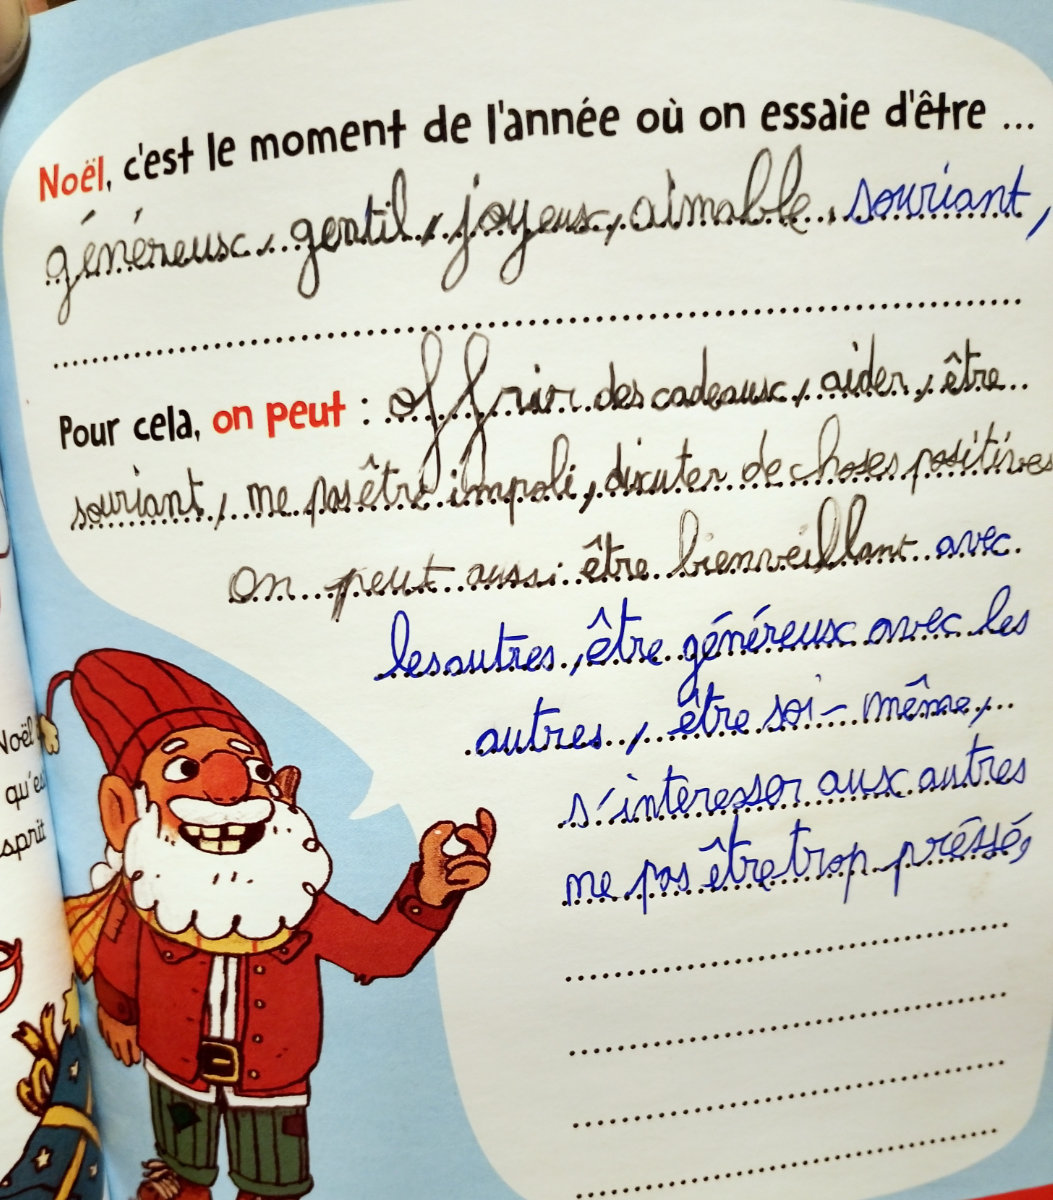 Noël, c'est le moment de l'année où on essaie d'être ...
généreux, gentil, joyeux, aimable, souriant,
Pour cela, on peut : offrir des cadeaux, aider, être
souriant, ne pas être impoli, discuter de choses positives
on peut aussi être bienveillant avec
les autres, être généreux avec les
autres, être soi-même,
s'intéresser aux autres
ne pas être trop préssé,
Noël
qu'es
sprit